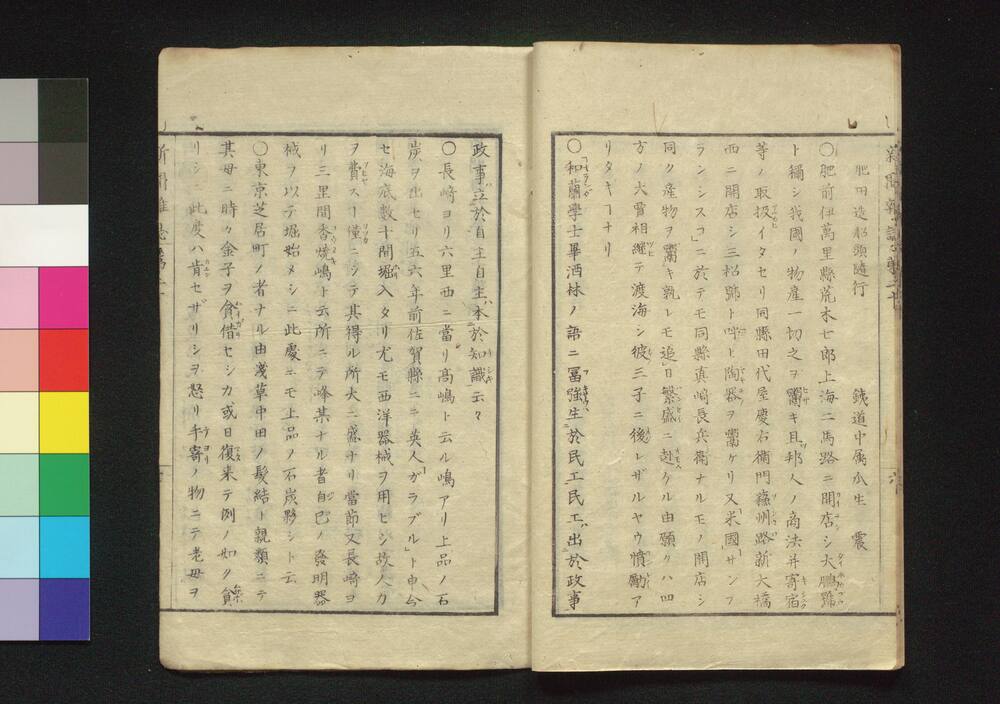 肥田造船頭隨行　鉄道中属瓜生　震
〇肥前伊萬里縣荒木七郎上海二馬路ニ開店シ大鵬號
ト稱シ我國ノ物産一切之ヲ鬻キ且邦人ノ商法并寄宿
等ノ取扱イタセリ同縣田代屋慶右衛門蘓州路新大橋
西ニ開店シ三松號ト呼ヒ陶器ヲ鬻ケリ又米國サンフ
ランシスコニ於テモ同縣真崎長兵衛ナルモノ開店シ
同ク産物ヲ鬻キ孰レモ追日繁盛ニ赴ケル由願クハ四
方ノ大賈相継テ渡海シ彼三子ニ後レザルヤウ憤勵ア
リタキヿナリ
〇和蘭學士畢洒林ノ語ニ冨強生於民工民工出於政事
政事立於自主自主本於知識云々
〇長崎ヨリ六里西ニ當リ髙嶋ト云ル嶋アリ上品ノ石
炭ヲ出セリ五六年前佐賀縣ニテ英人ガラブルト申合
セ海底數十間堀入タリ尤モ西洋器械ヲ用ヒシ故人力
ヲ費スヿ僅ニシテ其得ル所大ニ盛ナリ當節又長崎ヨ
リ三里間香焼嶋ト云所ニテ峰某ナル者自己ノ發明器
械ヲ以テ堀始メシニ此慶ニモ上品ノ石炭夥シト云
〇東京芝居町ノ者ナル由淺草中田ノ髪結ト親類ニテ
其母ニ時々金子ヲ貪借セシカ或日復来テ例ノ如ク貪
リシニ此度ハ肯セザリシヲ怒リ手寄ノ物ニテ老母ヲ